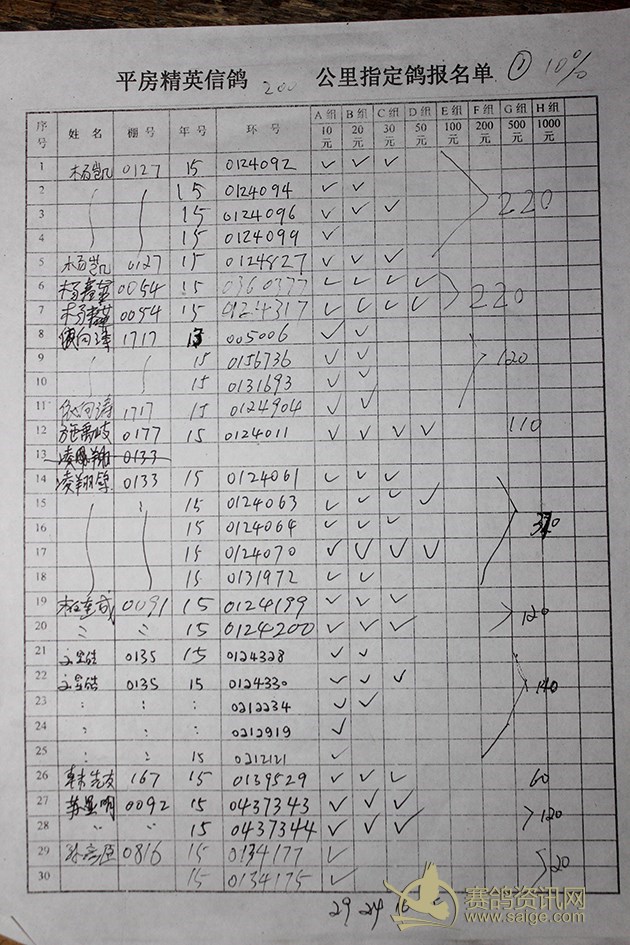 平房精英信鸽 200 公里指定鸽报名单 ① 10%
序号 姓名 棚号 年号 环号 A组 B组 C组 D组 E组 F组 G组 H组
10元 20元 30元 50元 100元 200元 500元 1000元
1 杨凯 0127 15 0124092 ✓ ✓ ✓
2 15 0124094 ✓ ✓
3 15 0124096 ✓ ✓ ✓ 220
4 15 0124099 ✓
5 杨凯 0127 15 0124827 ✓ ✓ ✓
6 0054 15 0360377 ✓ ✓ ✓ ✓ 220
7 0054 15 0124317 ✓ ✓ ✓ ✓
8 1717 005006 ✓ ✓
9 15 0156736 ✓ ✓ 120
10 15 0131693 ✓ ✓
11 1717 15 0124904 ✓ ✓
12 0177 15 0124011 ✓ ✓ ✓ ✓ 110
13 0133
14 0133 15 0124061 ✓ ✓ ✓
15 15 0124063 ✓ ✓ ✓ ✓
16 15 0124064 ✓ ✓ ✓
17 15 0124070 ✓ ✓ ✓ ✓
18 15 0131972 ✓ ✓
19 0091 15 0124199 ✓ ✓ ✓ 120
20 〃 〃 15 0124200 ✓ ✓ ✓
21 0135 15 0124328 ✓ ✓
22 0135 15 0124330 ✓ ✓ ✓
23 : : : 0212234 ✓ ✓
24 : : : 0212919 ✓
25 : : 15 0212121 ✓
26 167 15 0139529 ✓ ✓ ✓ 60
27 苏显明 0092 15 0437343 ✓ ✓ ✓ 120
28 〃 〃 15 0437344 ✓ ✓ ✓
29 0816 15 0134177 ✓ 20
30 15 0134175 ✓
29 24 16
赛鸽资讯网
www.saige.com